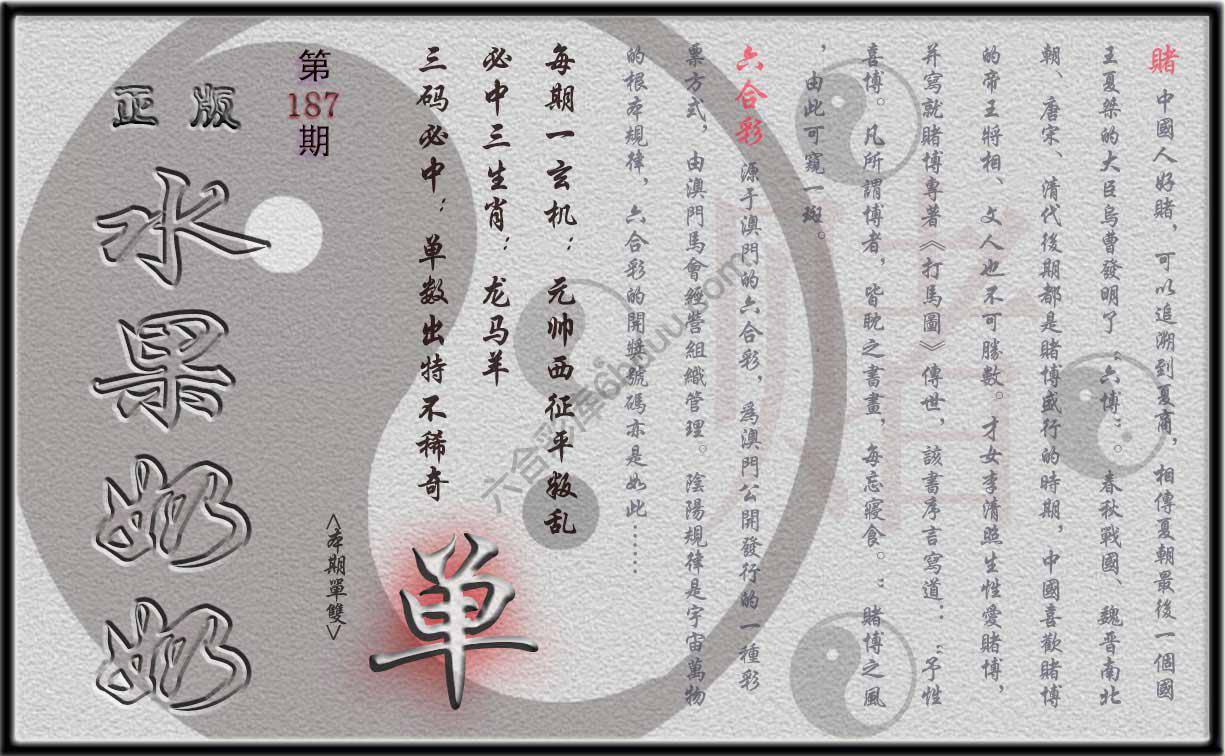 賭 中國人好賭，可以追溯到夏商，相傳夏朝最後一個國
王夏桀的大臣烏曹發明了“六博”。春秋戰國、魏晋南北
朝、唐宋、清代後期都是賭博盛行的時期，中國喜歡賭博
的帝王將相、文人也不可勝數。才女李清照生性愛賭博，
并寫就賭博專著《打馬圖》傳世，該書序言寫道：“予性
喜博。凡所謂博者，皆眈之書畫，每忘寢食。：賭博之風
，由此可窺一斑。
六合彩 源于澳門的六合彩，爲澳門公開發行的一種彩
票方式，由澳門馬會經營組織管理。陰陽規律是宇宙萬物
的根本規律，六合彩的開獎號碼亦是如此……
每期一玄机：元帅西征平叛乱
必中三生肖：龙马羊
三码必中：单数出特不稀奇
单
<本期單雙>
第
187
期
正版
水果奶奶
賭
六合彩库6hduu.com